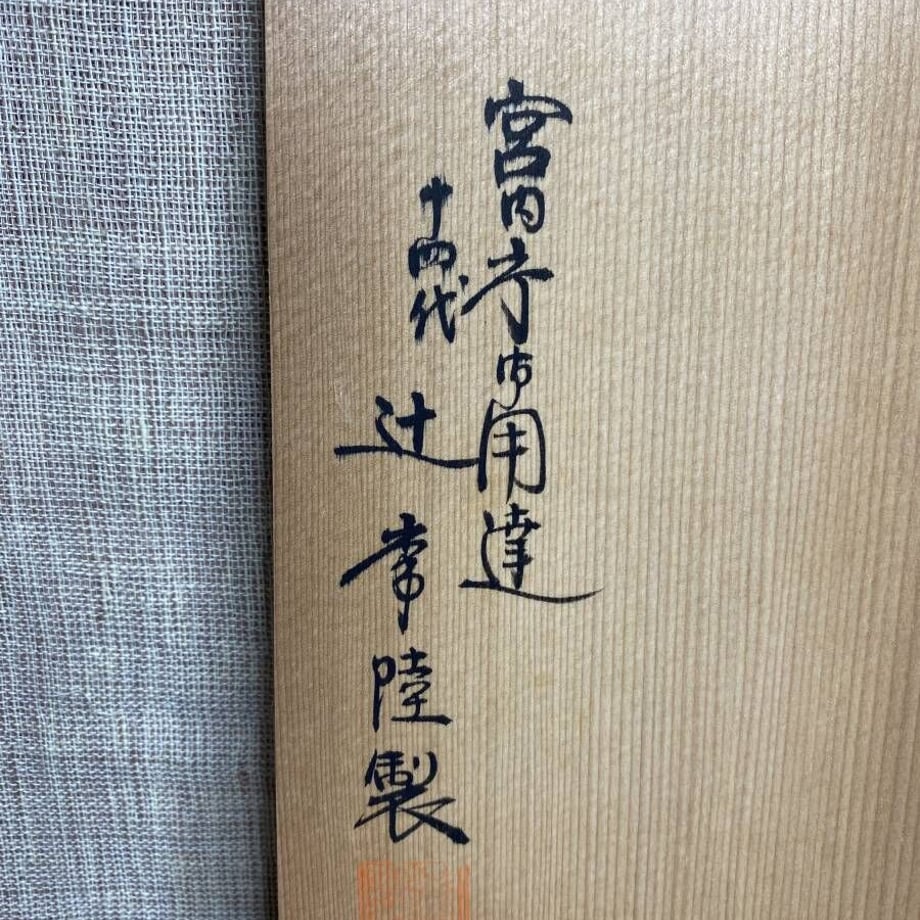 宮内庁御用達
十四代 辻常陸製